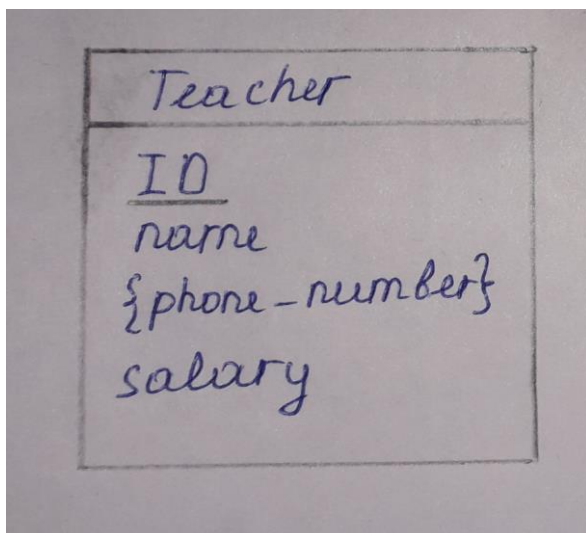 Teacher
ID
name
{phone-number}
salary